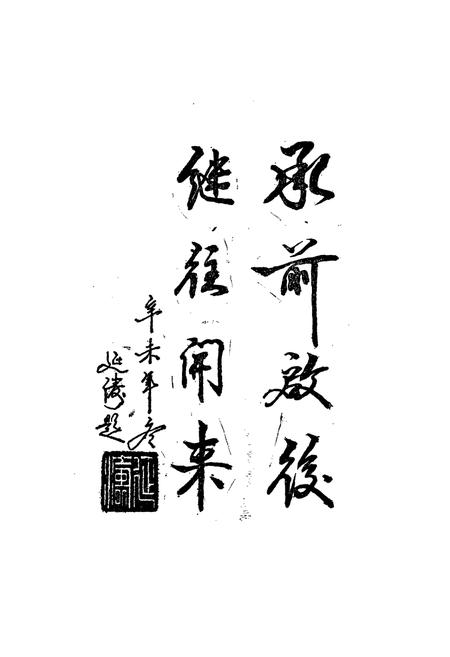 承前啟後
继往開来
辛未年冬
延濤題